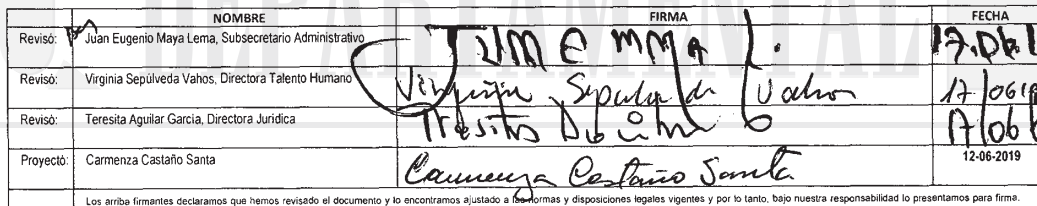 DEPARTAMENTAL
NOMBRE FIRMA FECHA
Revisó: Juan Eugenio Maya Lema, Subsecretario Administrativo 17.06.1
Revisó: Virginia Sepúlveda Vahos, Directora Talento Humano Virginia Sepulveda Vahos 17/06/19
Revisó: Teresita Aguilar García, Directora Jurídica Teresita 17/06/
Proyectó: Carmenza Castaño Santa Carmenza Castaño Santa 12-06-2019
Los arriba firmantes declaramos que hemos revisado el documento y lo encontramos ajustado a las normas y disposiciones legales vigentes y por lo tanto, bajo nuestra responsabilidad lo presentamos para firma.